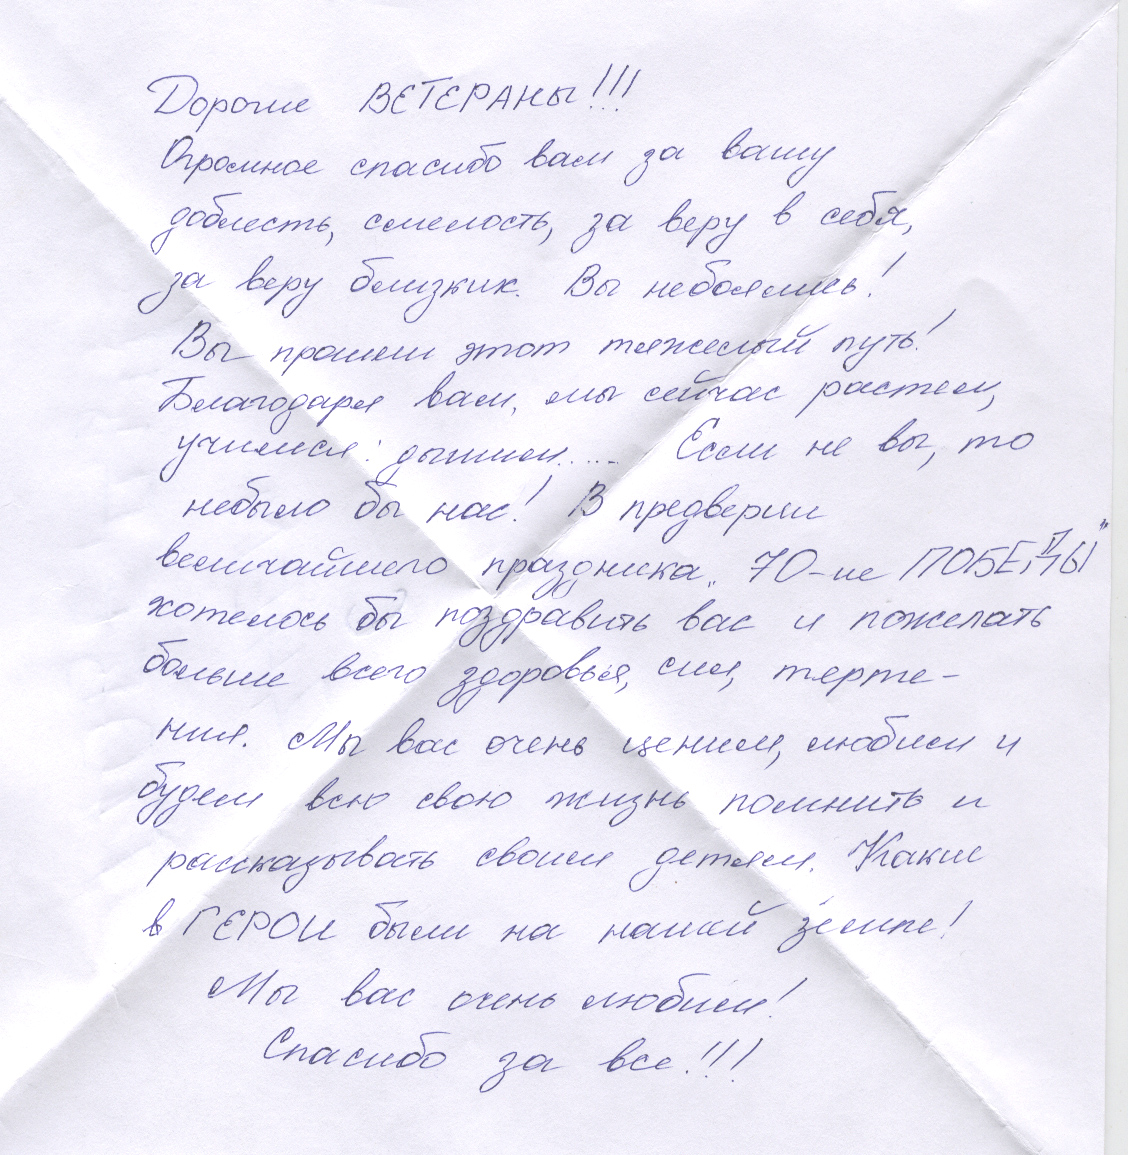 Дорогие ВЕТЕРАНЫ!!!
Огромное спасибо вам за вашу
доблесть, смелость, за веру в себя,
за веру близких. Вы небоялись!
Вы прошли этот тяжелый путь!
Благодаря вам, мы сейчас растем,
учимся, дышим..... Если не вы, то
небыло бы нас! В предверии
величайшего праздника „70-ие ПОБЕДЫ"
хотелось бы поздравить вас и пожелать
больше всего здоровья, сил, терпе-
ния. Мы вас очень ценим, любим и
будем всю свою жизнь помнить и
рассказывать своим детям. Какие
в ГЕРОИ были на нашей земле!
Мы вас очень любим!
Спасибо за все!!!